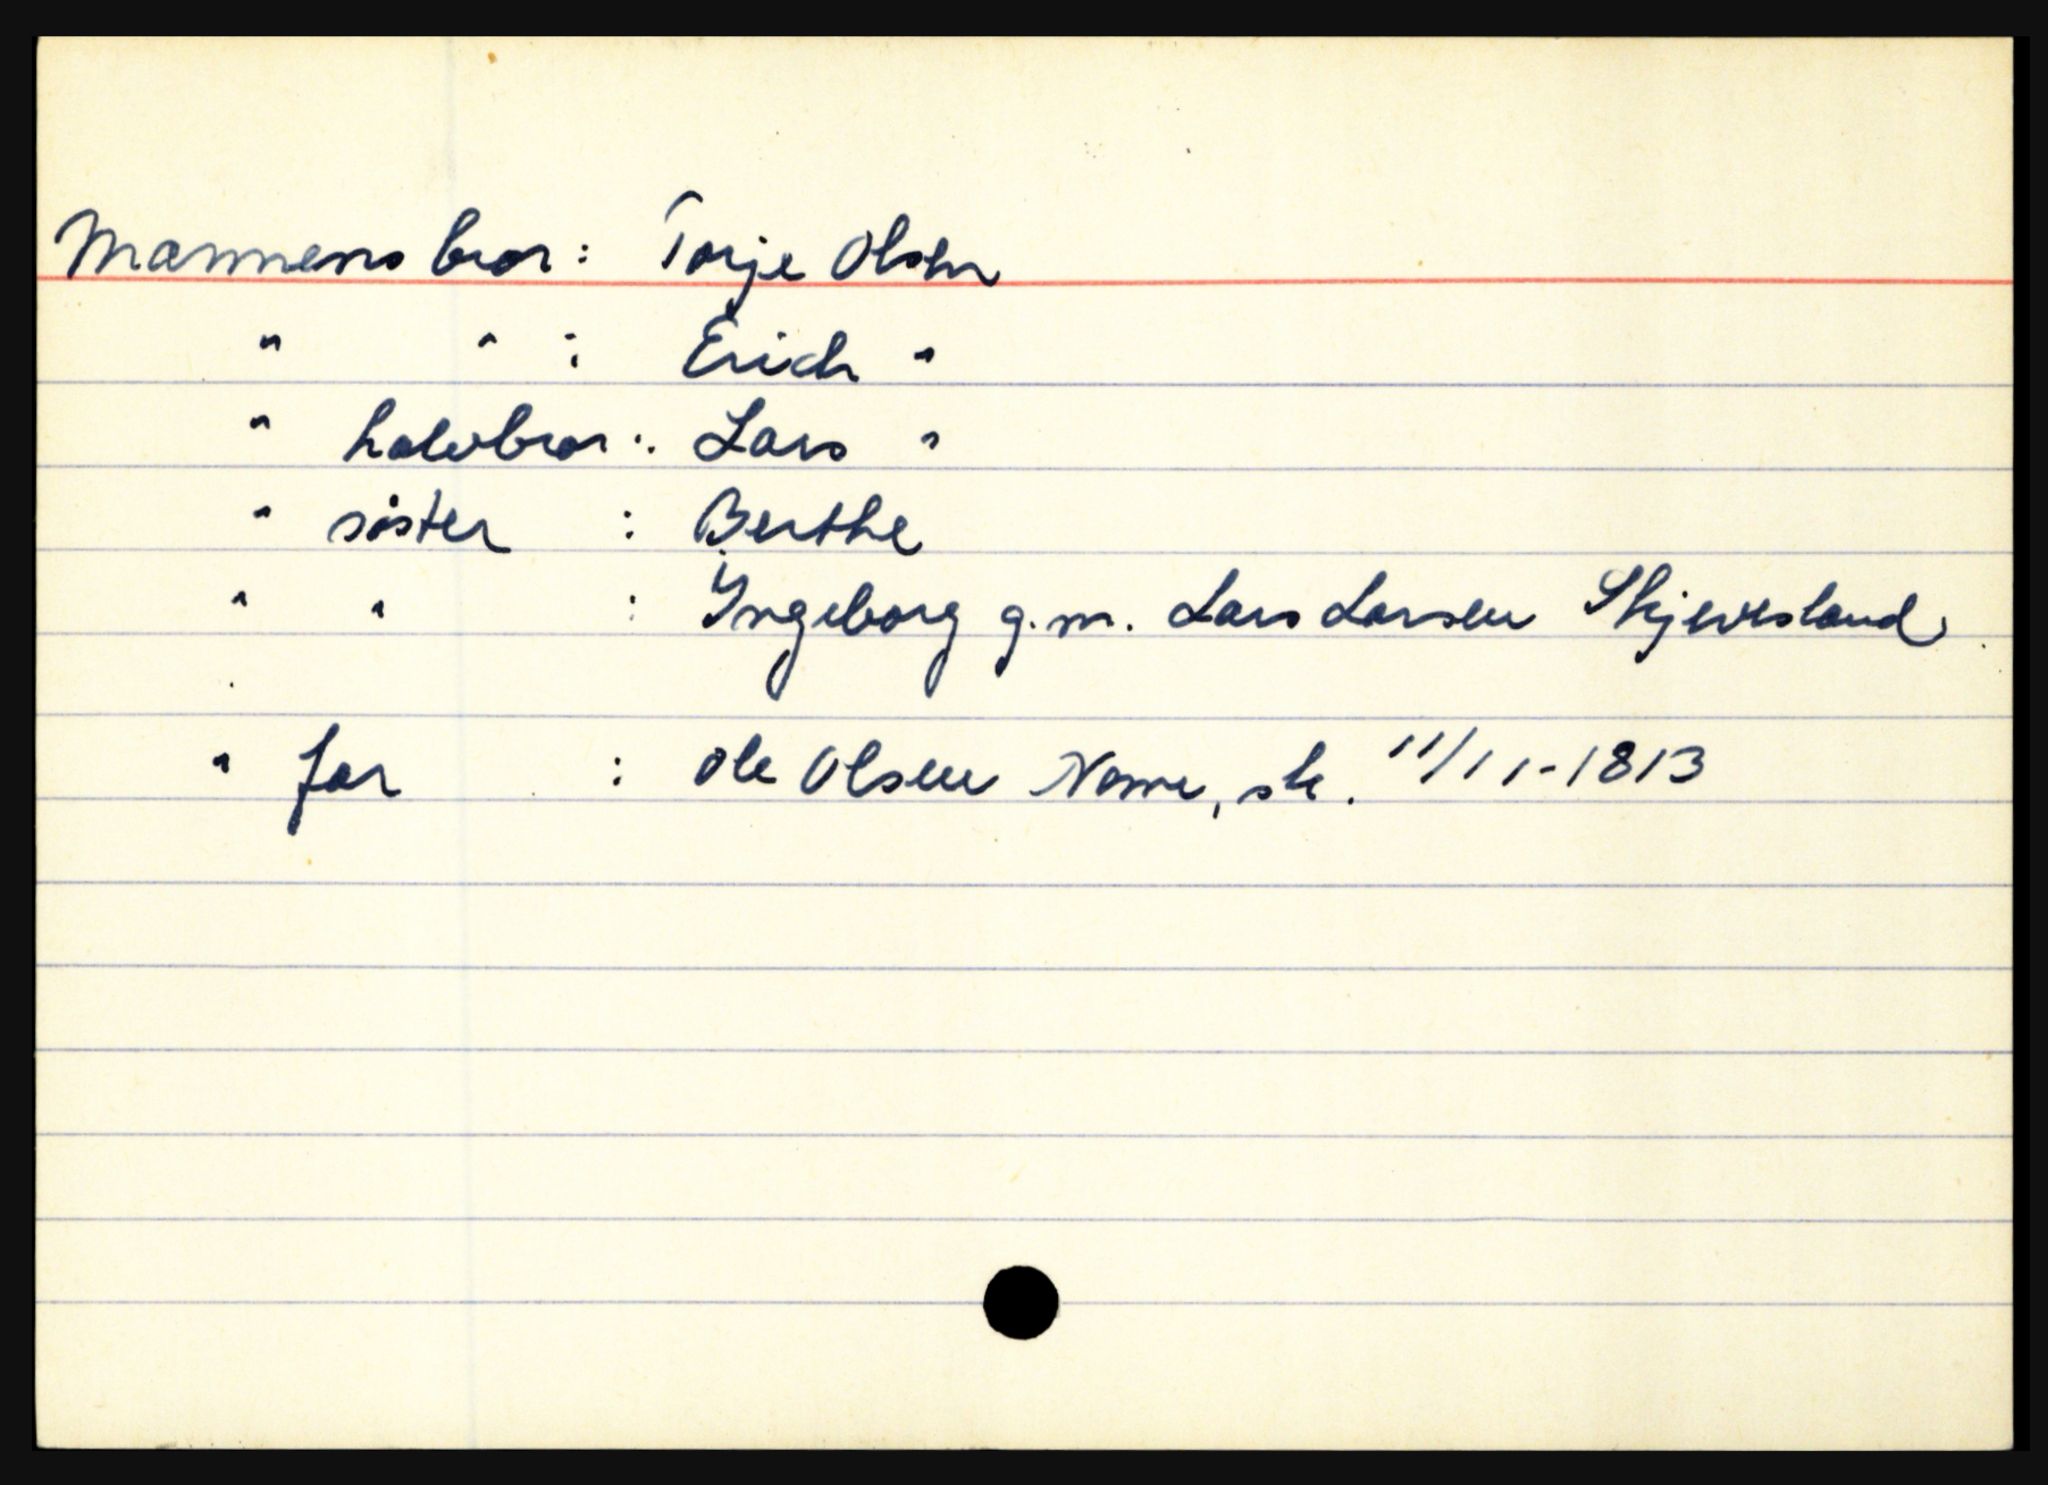 Mannens bror: Torje Olsen
" " : Erich "
" halvbror: Lars "
" søster : Berthe
" " : Ingeborg g.m. Lars Larsen Skjevesland
" far : Ole Olsen Nome, sk. 11/11-1813